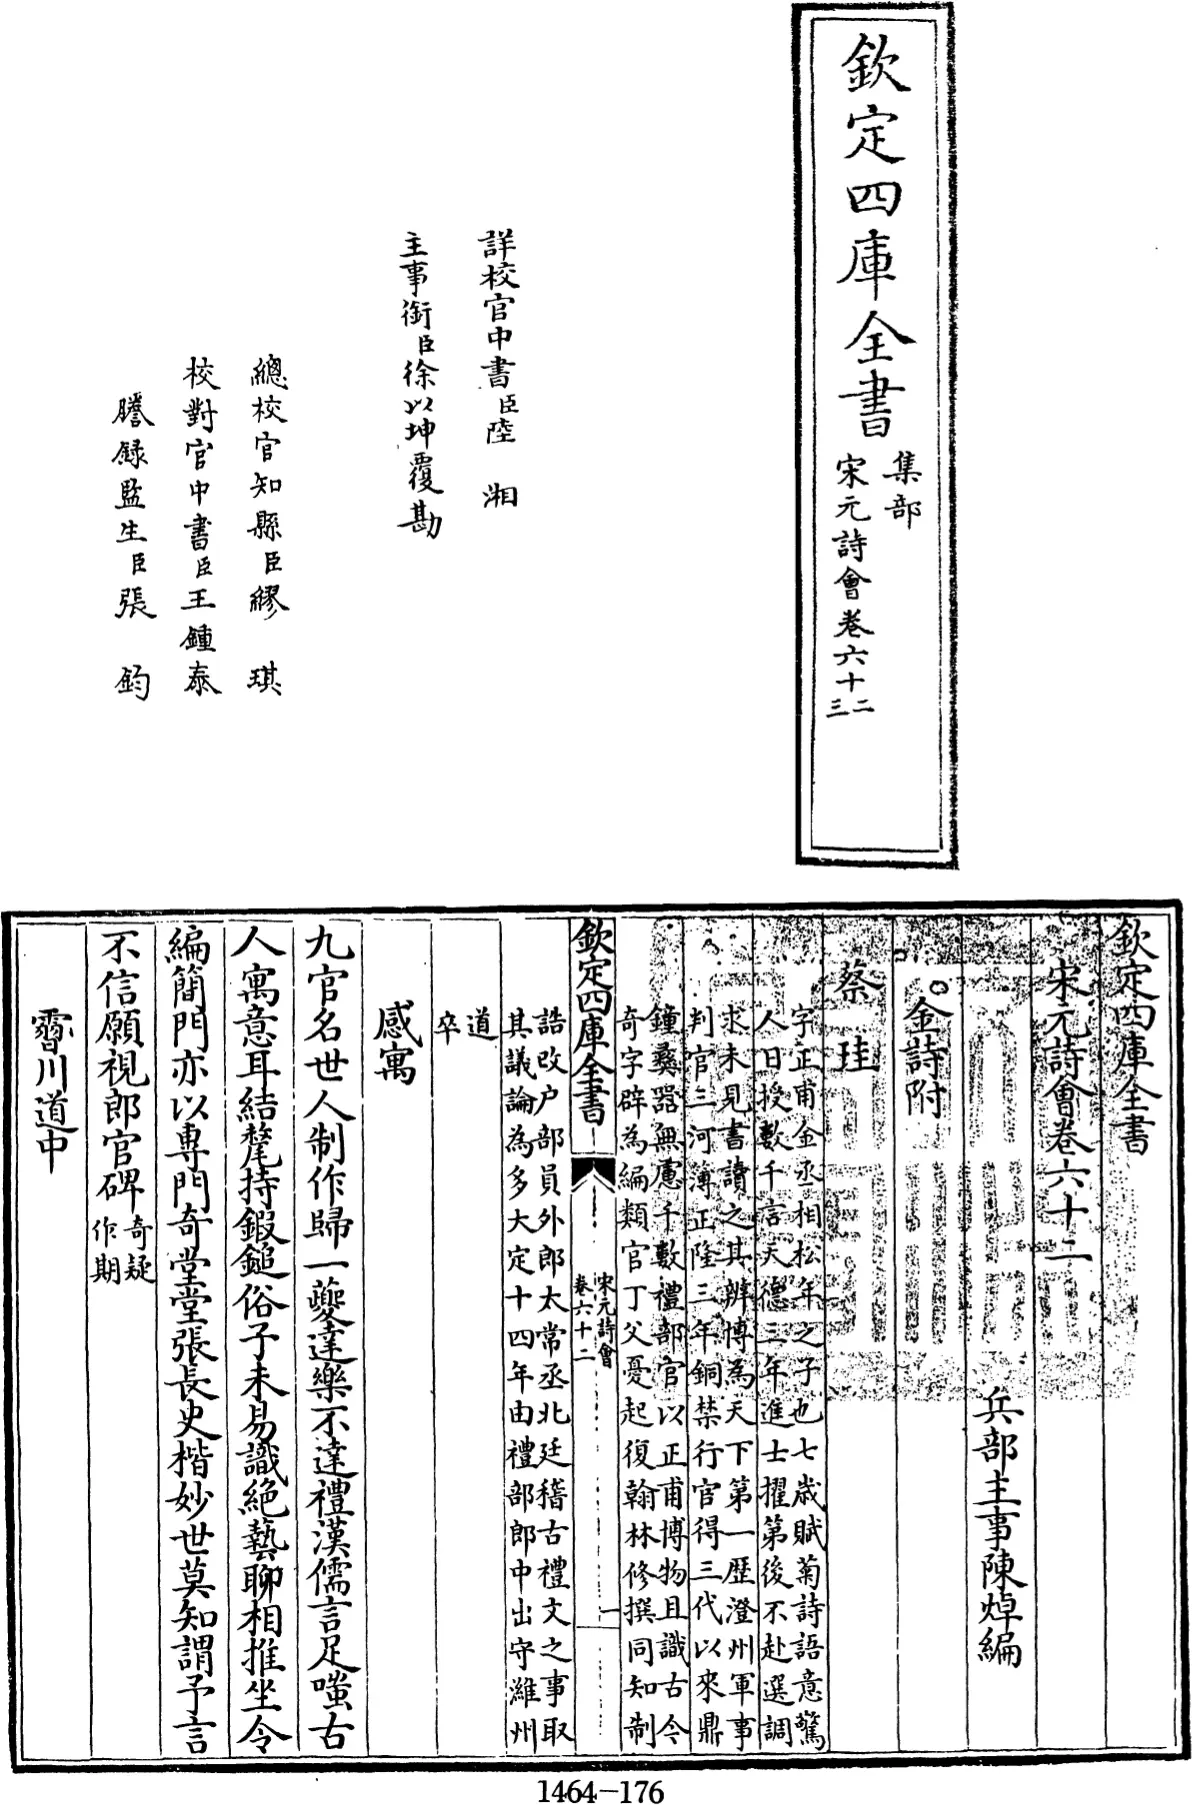 欽定四庫全書
集部
宋元詩會卷六十二
三
詳校官中書臣陸湘
主事銜臣徐以坤覆勘
總校官知縣臣繆琪
校對官中書臣王鍾泰
謄録監生臣張鈞
欽定四庫全書
宋元詩會卷六十二
兵部主事陳焯編
金詩附
蔡珪
字正甫金丞相松年之子也七歲賦菊詩語意驚
人日授數千言天德三年進士擢第後不赴選調
求未見書讀之其辨博為天下第一歴澄州軍事
判官三河簿正隆三年銅禁行官得三代以來鼎
鐘彞器無慮千數禮部官以正甫博物且識古今
奇字辟為編類官丁父憂起復翰林修撰同知制
欽定四庫全書
宋元詩會
卷六十二
一
誥改户部員外郎太常丞北廷稽古禮文之事取
其議論為多大定十四年由禮部郎中出守濰州
道
卒
感寓
九官名世人制作歸一䕫達樂不達禮漢儒言足嗤古
人寓意耳結髦持鍜鎚俗子未易識絶藝聊相推坐令
編簡門亦以専門奇堂堂張長史楷妙世莫知謂予言
不信願視郎官碑奇疑
作期
霫川道中
1464-176